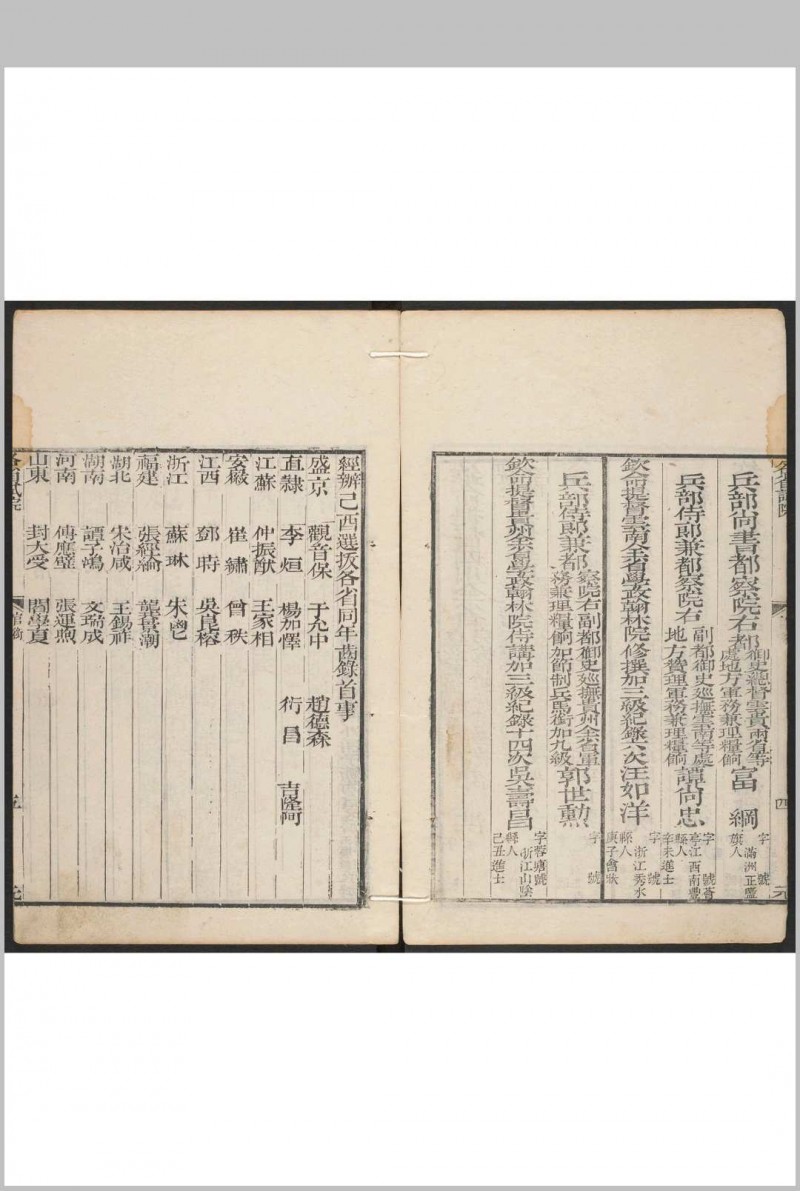 兵部尚書都察院右都御史總督雲貴兩省等處地方軍務兼理糧餉富 綱 字 號 滿洲正藍旗人
兵部侍郎兼都察院右副都御史巡撫雲南等處地方贊理軍務兼理糧餉譚尚忠 字 號薈亭江西南豐縣人辛未進士
欽命提督雲南全省學政翰林院修撰加三級紀錄六次汪如洋 字 號 浙江秀水縣人庚子會狀
兵部侍郎兼都察院右副都御史巡撫貴州全省軍務兼理糧餉加節制兵馬銜加九級郭世勳 字 號
欽命提督貴州全省學政翰林院侍講加三級紀錄十四次吳壽昌 字蓉塘號 浙江山陰縣人己丑進士
四
經辦己酉選拔各省同年齒錄首事
盛京 觀音保 于允中 趙德森
直隸 李烜 楊加懌 衍昌 吉隆阿
江蘇 仲振猷 王家相
安徽 崔繡 曾秩
江西 鄧時 吳昆榕
浙江 蘇琳 朱鬯
福建 張經綸 龔景瀚
湖北 宋治咸 王錫祚
湖南 譚子鴻 文瑞成
河南 傅應璧 張運煦
山東 封大受 閻學夏
五